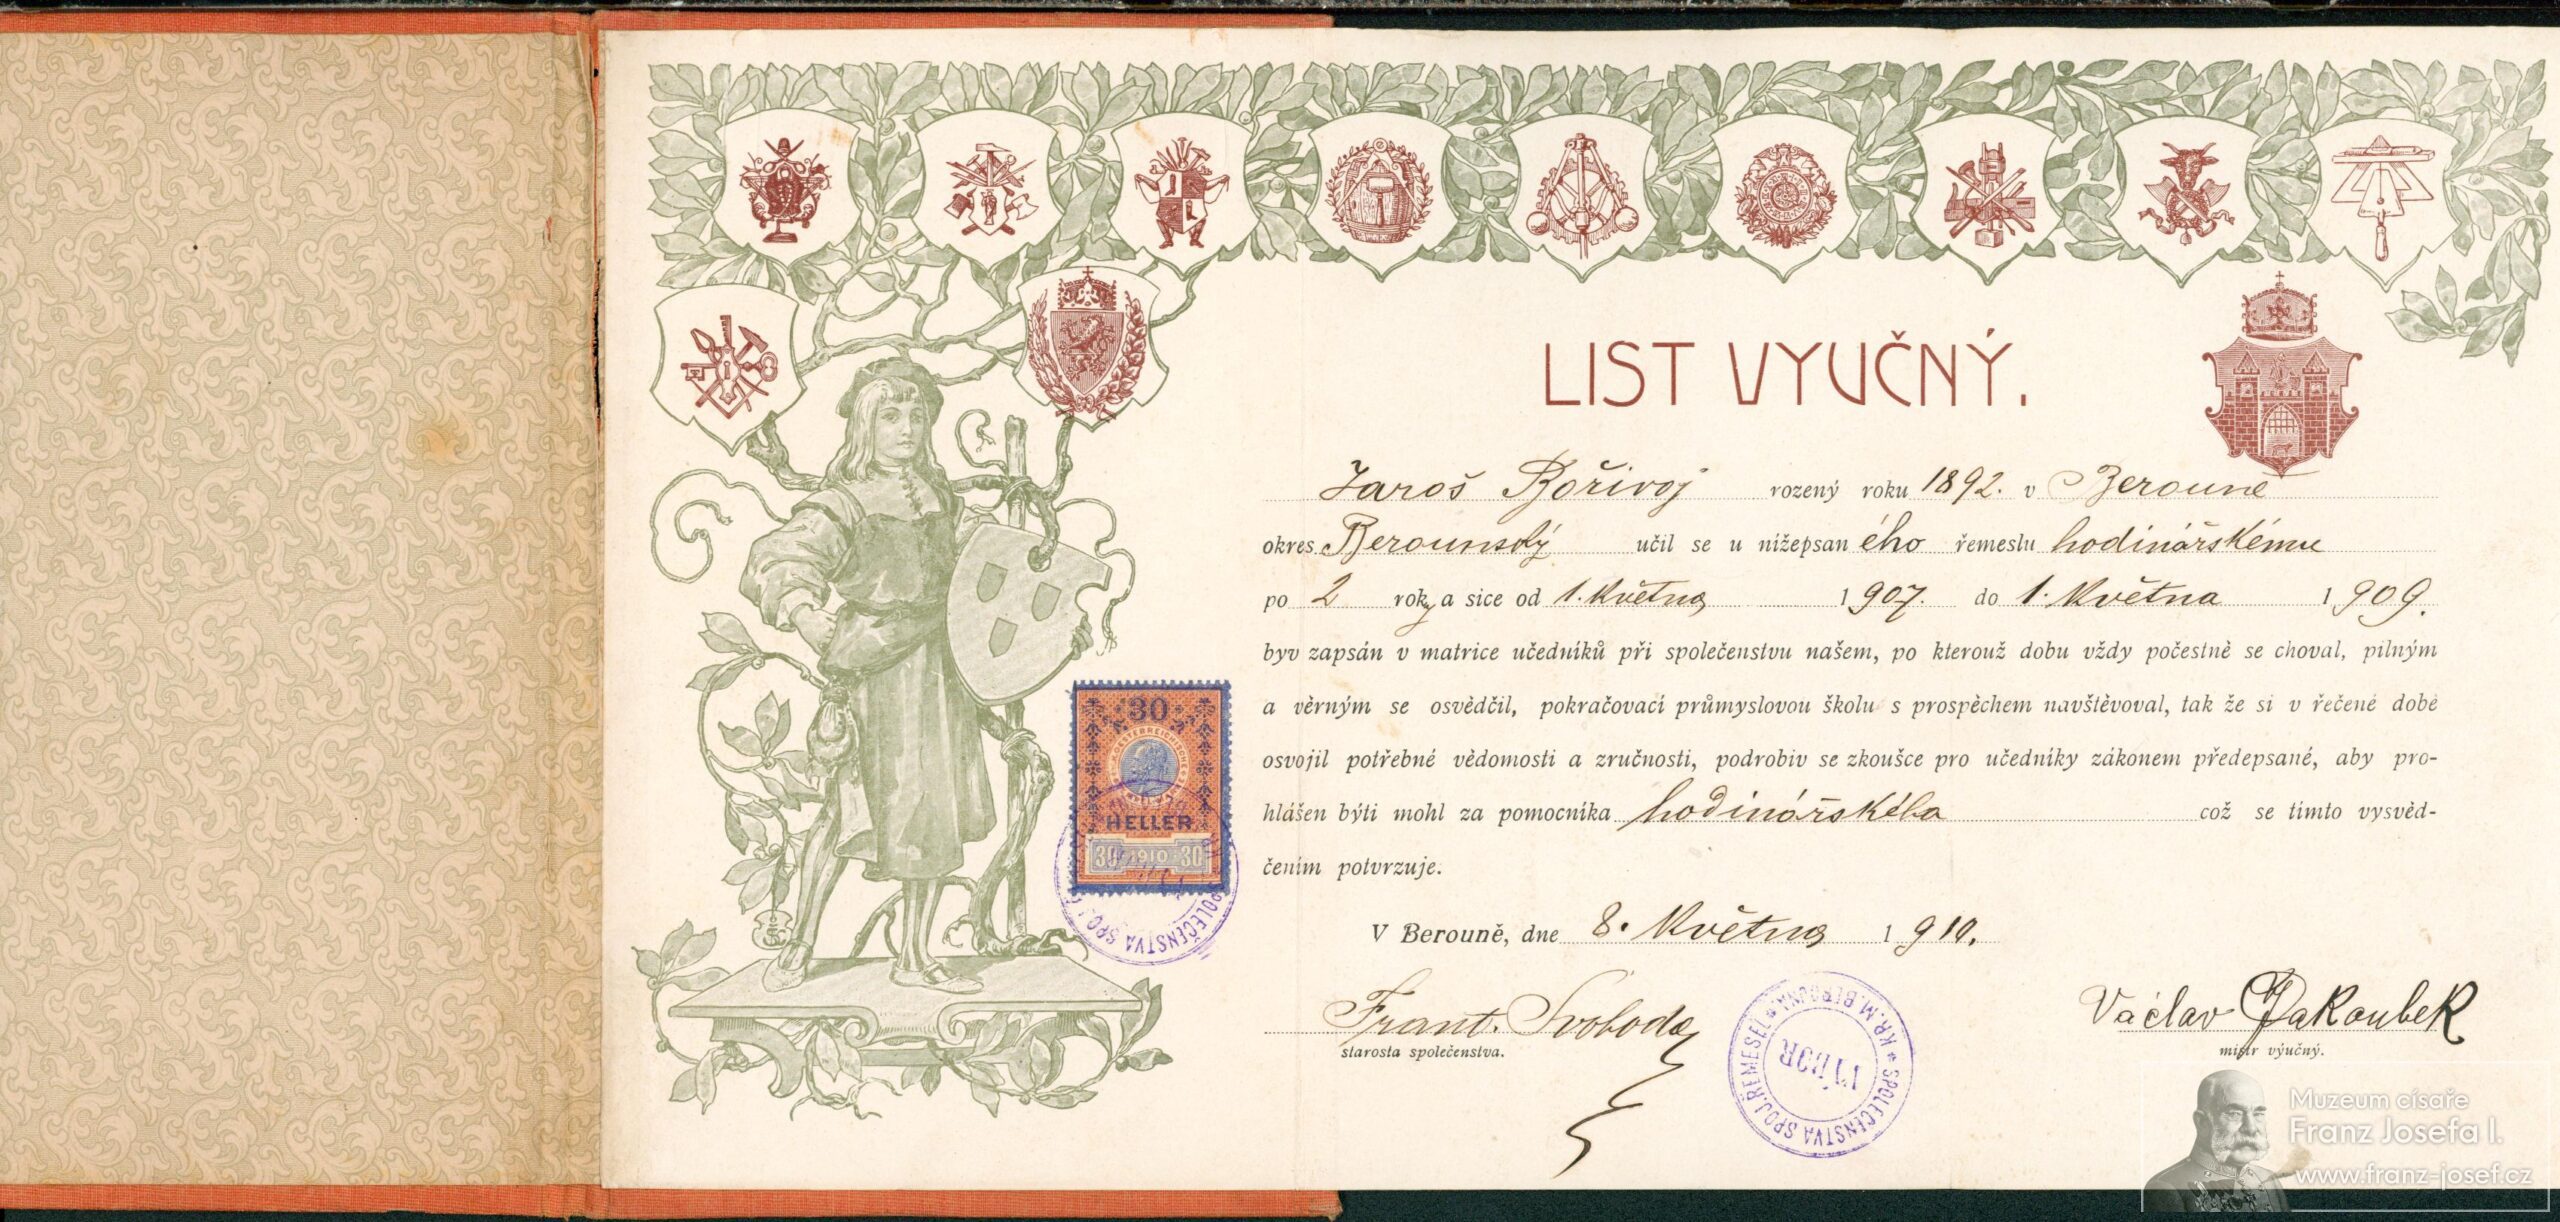 LIST VYUČNÝ.
Jaroš Bořivoj rozený roku 1892. v Berouně
okres Berounský učil se u nížepsaného řemeslu hodinářskému
po 2 roky a sice od 1. Května 1907. do 1. Května 1909.
byv zapsán v matrice učedníků při společenstvu našem, po kterouž dobu vždy počestně se choval, pilným
a věrným se osvědčil, pokračovací průmyslovou školu s prospěchem navštěvoval, tak že si v řečené době
osvojil potřebné vědomosti a zručnosti, podrobiv se zkoušce pro učedníky zákonem předepsané, aby pro-
hlášen býti mohl za pomocníka hodinářského což se tímto vysvěd-
čením potvrzuje.
V Berouně, dne 8. Května 1910.
Frant. Svoboda
starosta společenstva.
Václav Jakoubek
mistr výučný.
30
HELLER
30 1910 30
SPOLEČENSTVA SPOJ.
VÝBOR SPOLEČENSTVA SPOJ. ŘEMESEL * KR. M. BEROUNA *
Muzeum císaře
Franz Josefa I.
www.franz-josef.cz